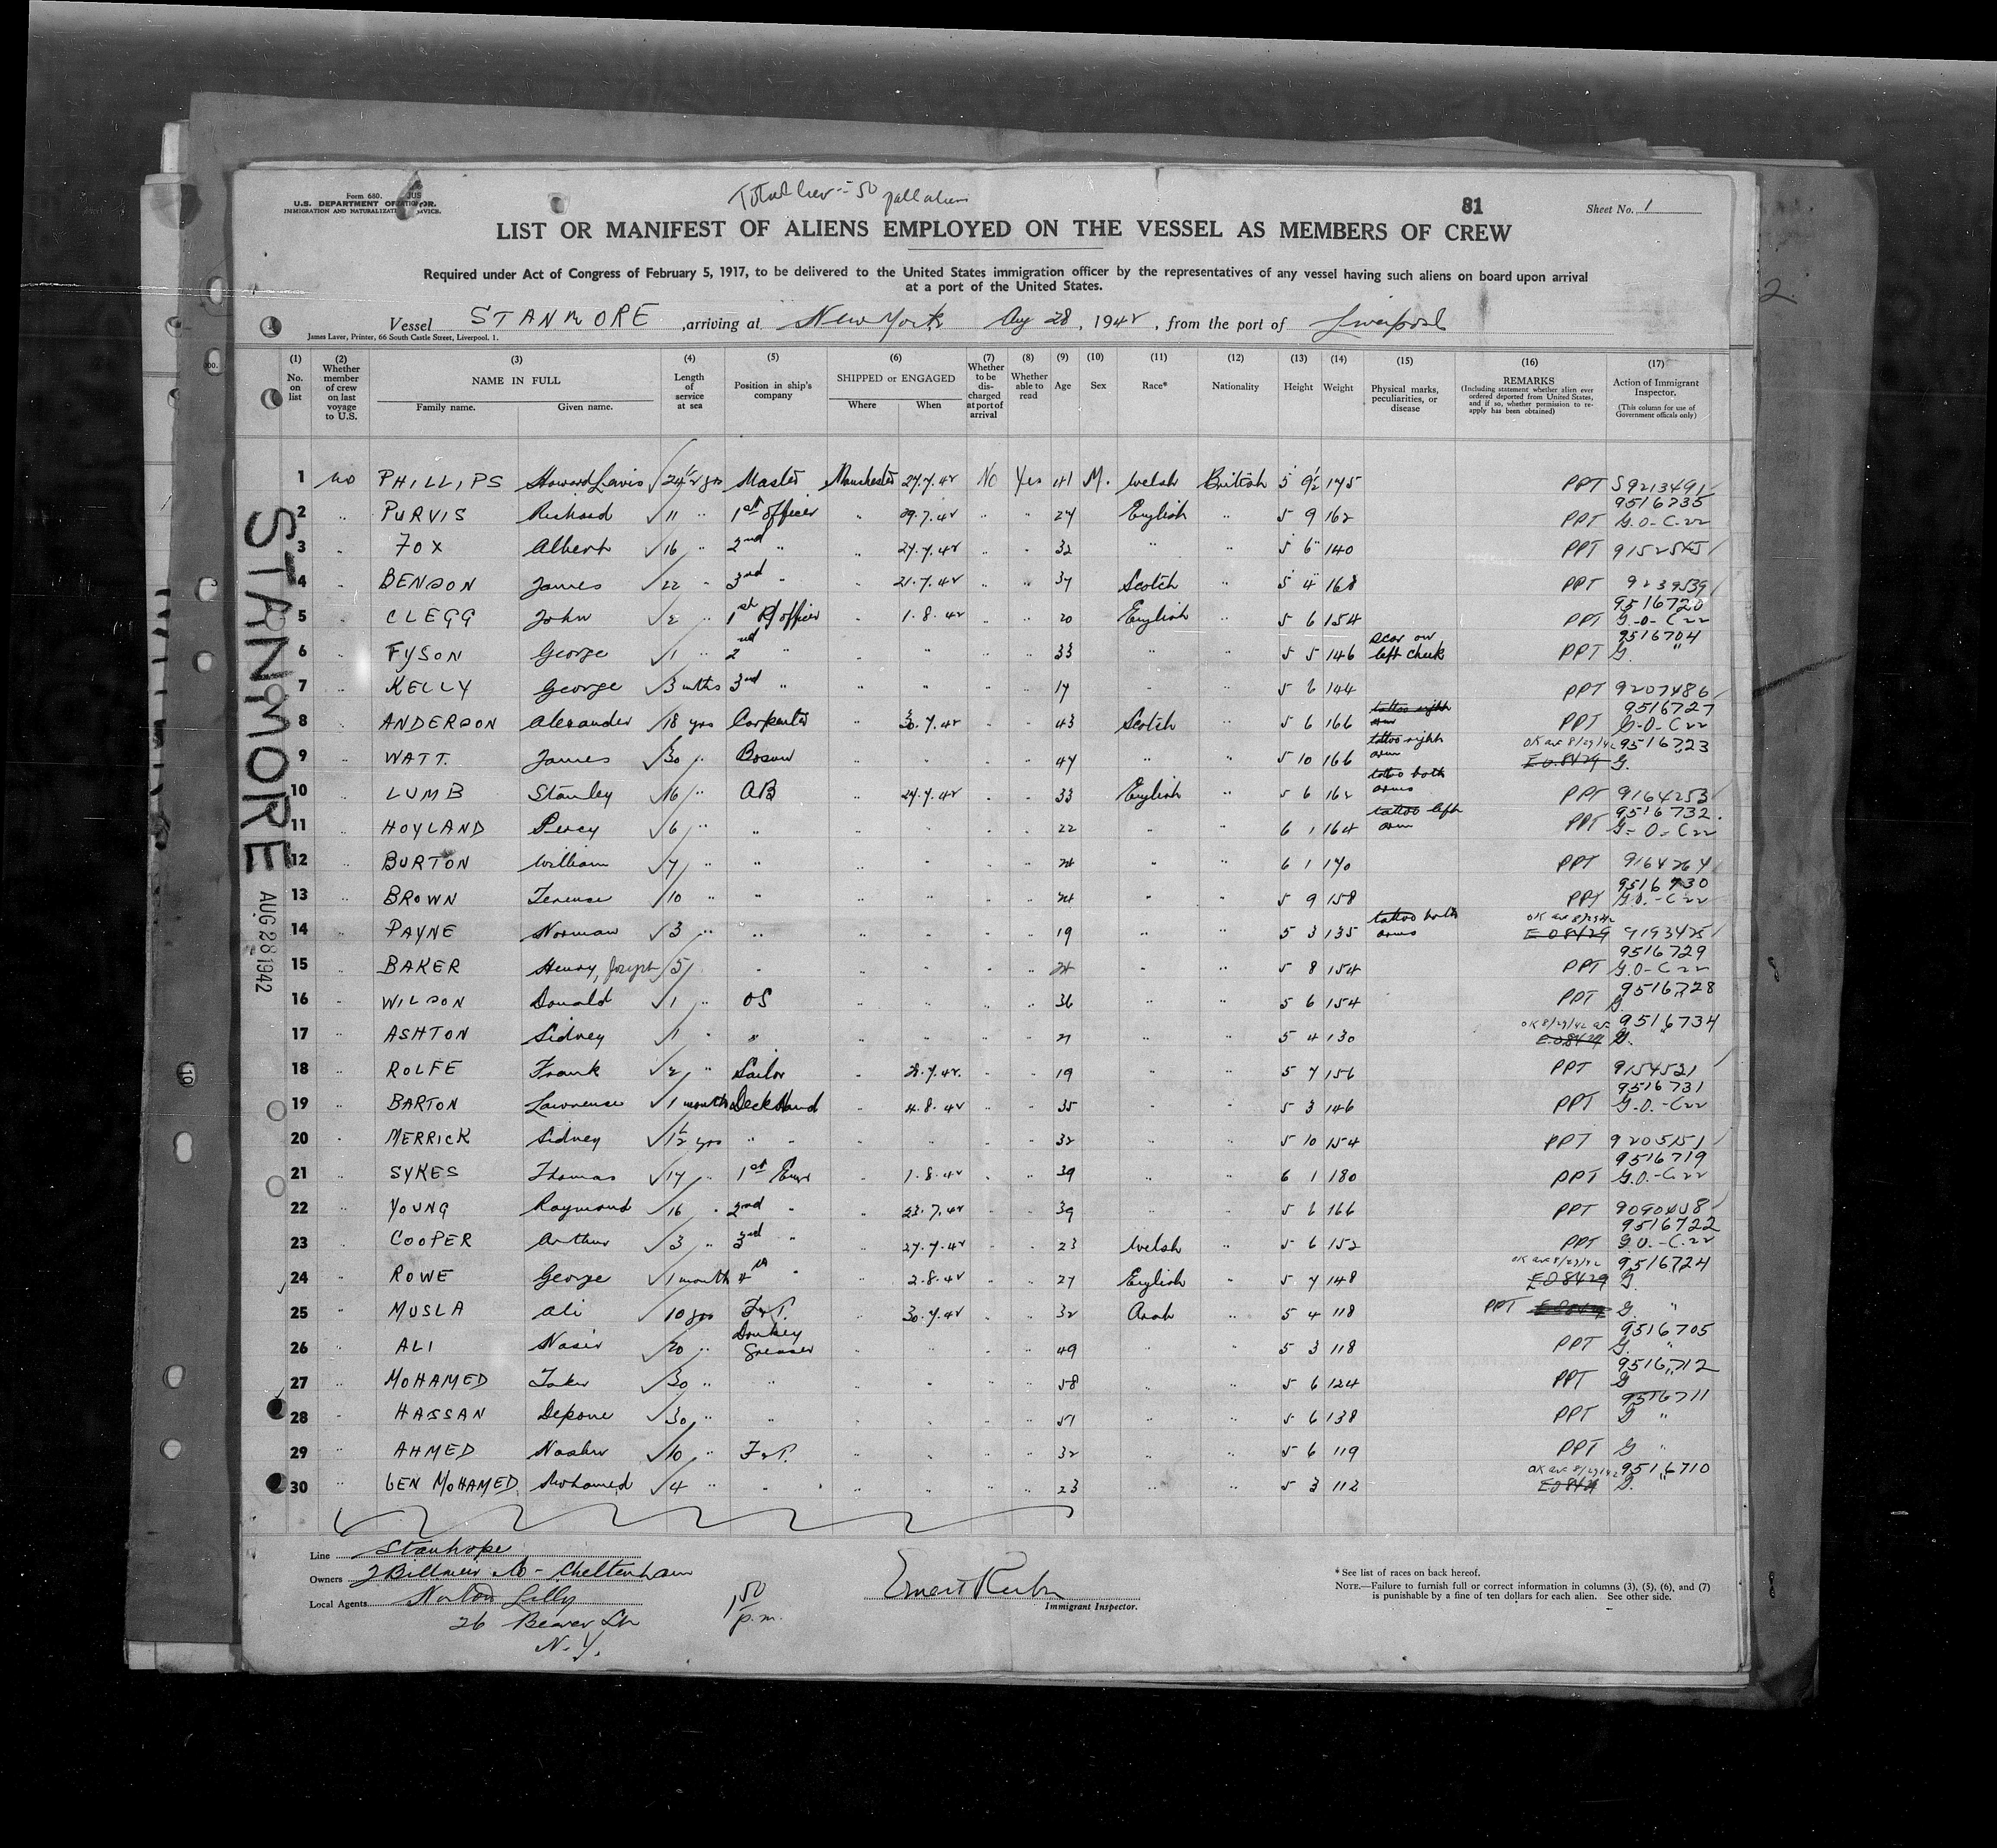 Form 680.
U.S. DEPARTMENT OF
IMMIGRATION AND NATURALIZATION SERVICE.
81
Sheet No. 1
LIST OR MANIFEST OF ALIENS EMPLOYED ON THE VESSEL AS MEMBERS OF CREW
Required under Act of Congress of February 5, 1917, to be delivered to the United States immigration officer by the representatives of any vessel having such aliens on board upon arrival
at a port of the United States.
Vessel STANMORE, arriving at New York Aug 28, 1942, from the port of Liverpool
James Laver, Printer, 66 South Castle Street, Liverpool. 1.
(1) No. on list (2) Whether member of crew on last voyage to U.S. (3) NAME IN FULL Family name. Given name. (4) Length of service at sea (5) Position in ship's company (6) SHIPPED or ENGAGED Where When (7) Whether to be discharged at port of arrival (8) Whether able to read (9) Age (10) Sex (11) Race* (12) Nationality (13) Height (14) Weight (15) Physical marks, peculiarities, or disease (16) REMARKS (Including statement whether alien ever ordered deported from United States, and if so, whether permission to re-apply has been obtained) (17) Action of Immigrant Inspector. (This column for use of Government officials only)
1 no PHILLIPS Howard Lavis 24½ yrs Master Manchester 27.7.42 No Yes 41 M. Welsh British 5 9½ 175 PPT 59213491
2 " PURVIS Richard 11 " 1st officer " 29.7.42 " " 27 English " 5 9 162 PPT 9516735 G.O-C-22
3 " FOX Albert 16 " 2nd " " 27.7.42 " " 32 " " 5 6 140 PPT 9152545
4 " BENSON James 22 " 3rd " " 21.7.42 " " 37 Scotch " 5 4 168 PPT 9239539
5 " CLEGG John 2 " 1st R/officer " 1.8.42 " " 20 English " 5 6 154 PPT 9516720 G.-O-C22
6 " FYSON George 1 " 2nd " " " " " 33 " " 5 5 146 scar on left cheek PPT 9516704 G. "
7 " KELLY George 3 mths 3rd " " " " " 17 " " 5 6 144 PPT 9207486
8 " ANDERSON Alexander 18 yrs Carpenter " 30.7.42 " " 43 Scotch " 5 6 166 tattoo right arm PPT 9516727 G-O-C22
9 " WATT. James 30 " Bosun " " " " 47 " " 5 10 166 tattoo right arm OK 8/29/42 E08429 9516723 G. "
10 " LUMB Stanley 16 " AB " 27.7.42 " " 33 English " 5 6 162 tattoo both arms PPT 9164253
11 " HOYLAND Percy 6 " " " " " " 22 " " 6 1 164 tattoo left arm PPT 9516732 G-O-C22
12 " BURTON William 7 " " " " " " 24 " " 6 1 170 PPT 9164764
13 " BROWN Terence 10 " " " " " " 24 " " 5 9 158 PPT 9516730 G.O.-C22
14 " PAYNE Norman 3 " " " " " " 19 " " 5 3 135 tattoo both arms OK 8/29/42 E08429 9193425
15 " BAKER Henry, Joseph 5 " " " " " 24 " " 5 8 154 PPT 9516729 G.O-C22
16 " WILSON Donald 1 " OS " " " " 36 " " 5 6 154 PPT 9516728 G. "
17 " ASHTON Sidney 1 " " " " " " 21 " " 5 4 130 OK 8/29/42 E08429 9516734 G. "
18 " ROLFE Frank 2 " Sailor " 28.7.42. " " 19 " " 5 7 156 PPT 9154521
19 " BARTON Lawrence 1 month Deck Hand " 4.8.42 " " 35 " " 5 3 146 PPT 9516731 G.O.-C22
20 " MERRICK Sidney 1½ yrs " " " " " " 32 " " 5 10 154 PPT 9205151
21 " SYKES Thomas 17 " 1st Engr " 1.8.42 " " 39 " " 6 1 180 PPT 9516719 G.O.-C-22
22 " YOUNG Raymond 16 " 2nd " " 23.7.42 " " 39 " " 5 6 166 PPT 9090408
23 " COOPER Arthur 3 " 3rd " " 27.7.42 " " 23 Welsh " 5 6 152 PPT 9516722 G.O.-C.22
24 " ROWE George 1 month 4th " " 2.8.42 " " 27 English " 5 7 148 OK 8/29/42 E08429 9516724 G. "
25 " MUSLA Ali 10 yrs F&T. " 30.7.42 " " 32 Arab " 5 4 118 PPT G "
26 " ALI Nasir 20 " Donkey Greaser " " " " 49 " " 5 3 118 PPT 9516705 G. "
27 " MOHAMED Taker 30 " " " " " " 58 " " 5 6 124 PPT 9516712 G "
28 " HASSAN Depone 30 " " " " " " 51 " " 5 6 138 PPT 9516711 G "
29 " AHMED Nasher 10 " F&T. " " " " 32 " " 5 6 119 PPT G "
30 " BEN MOHAMED Mohamed 4 " " " " " " 23 " " 5 3 112 OK 8/29/42 E08429 9516710 G. "
STANMORE
AUG 28 1942
Line Stanhope
Owners J Billmeir Co - Cheltenham
Local Agents Norton Lilly
26 Beaver Str
N.Y.
1 50 p.m.
Immigrant Inspector.
*See list of races on back hereof.
NOTE.—Failure to furnish full or correct information in columns (3), (5), (6), and (7)
is punishable by a fine of ten dollars for each alien. See other side.